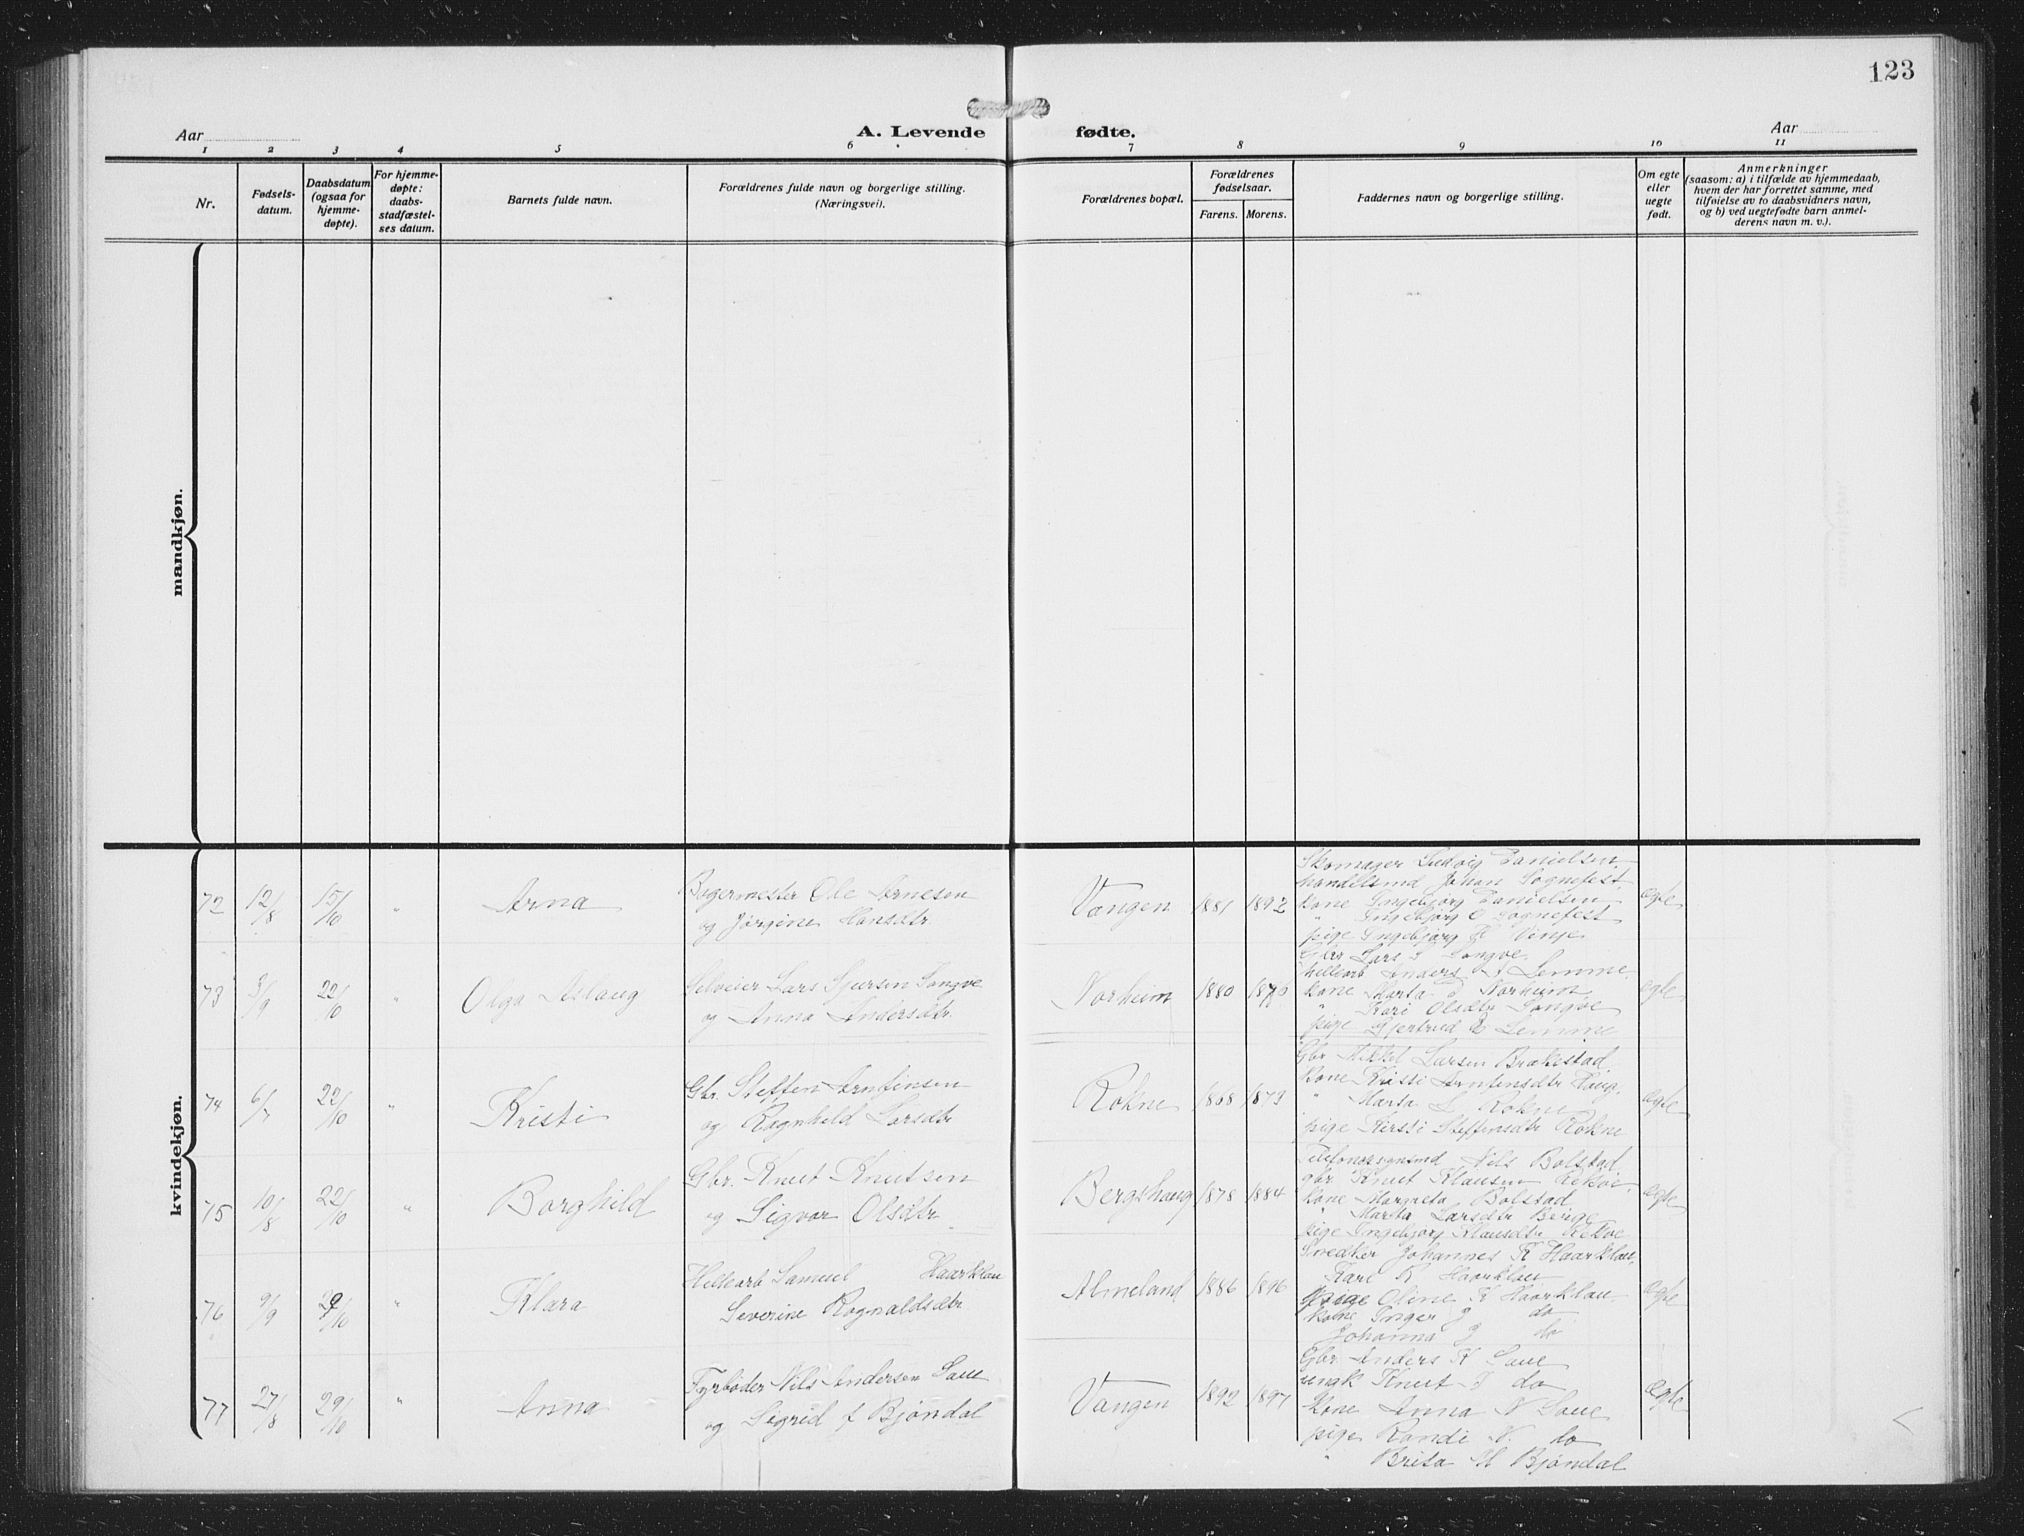 123
Aar A. Levende fødte. Aar
1 2 3 4 5 6 7 8 9 10 11
Nr.
Fødsels-
datum.
Daabsdatum
(ogsaa for
hjemme-
døpte).
For hjemme-
døpte:
daabs-
stadfæstel-
ses datum.
Barnets fulde navn.
Forældrenes fulde navn og borgerlige stilling.
(Næringsvei).
Forældrenes bopæl.
Forældrenes
fødselsaar.
Farens. Morens.
Faddernes navn og borgerlige stilling.
Om egte
eller
uegte
født.
Anmerkninger
(saasom: a) i tilfælde av hjemmedaab,
hvem der har forrettet samme, med
tilføielse av to daabsvidners navn,
og b) ved uegtefødte barn anmel-
derens navn m. v.).
mandkjøn.
kvindekjøn.
72 12/8 15/10 " Arna
Bygermester Ole Arnesen
og Jørgine Hansdtr.
Vangen 1881 1892
Skomager Ludvig Danielsen
handelsmd Johan Sognefest
kone Ingebjørg Danielsen
" Ingebjørg O Sognefest
pige Ingebjørg K Vinje
egte
73 3/9 22/10 " Olga Aslaug
Selveier Lars Sjursen Songve
og Anna Andersdtr.
Norheim 1880 1876
Gbr Lars S Songve
hellearb Anders A Lemme
kone Marta D Norheim
" Kari Olsdtr Songve
pige Gjertrud E Lemme
egte
74 6/7 22/10 " Kristi
Gbr. Steffen Arnfinsen
og Ragnhild Larsdtr
Rokne 1868 1873
Gbr Mikkel Larsen Brækstad
Kone Kristi Arnfinsdtr Haug
" Marta L Rokne
pige Kirsti Steffensdtr Rokne
egte
75 10/8 22/10 " Borghild
Gbr. Knut Knutsen
og Sigvor Olsdtr
Bergshaug 1878 1884
Nils Bolstad
gbr Knut Klausen Rekve
kone Margreta Bolstad
" Marta Larsdtr Berge
pige Ingebjørg Klausdtr Rekve
egte
76 9/9 29/10 " Klara
Hellearb Samuel Haarklau
Severine Ragnaldsdtr
Almeland 1886 1896
Snedker Johannes K Haarklau
Karl R Haarklau
pige Oline K Haarklau
kone Inger J do
Johanna J do
egte
77 27/8 29/10 " Anna
Fyrbøder Nils Andersen Saue
og Sigrid f Bjøndal
Vangen 1892 1897
Gbr. Anders K Saue
ungk Knut I do
Kone Anna N Saue
pige Randi N. do
" Brita H Bjøndal
egte